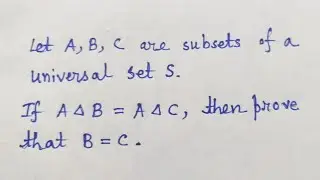 Let A, B, C are subsets of a
universal set S.
If A Δ B = A Δ C, then prove
that B = C.